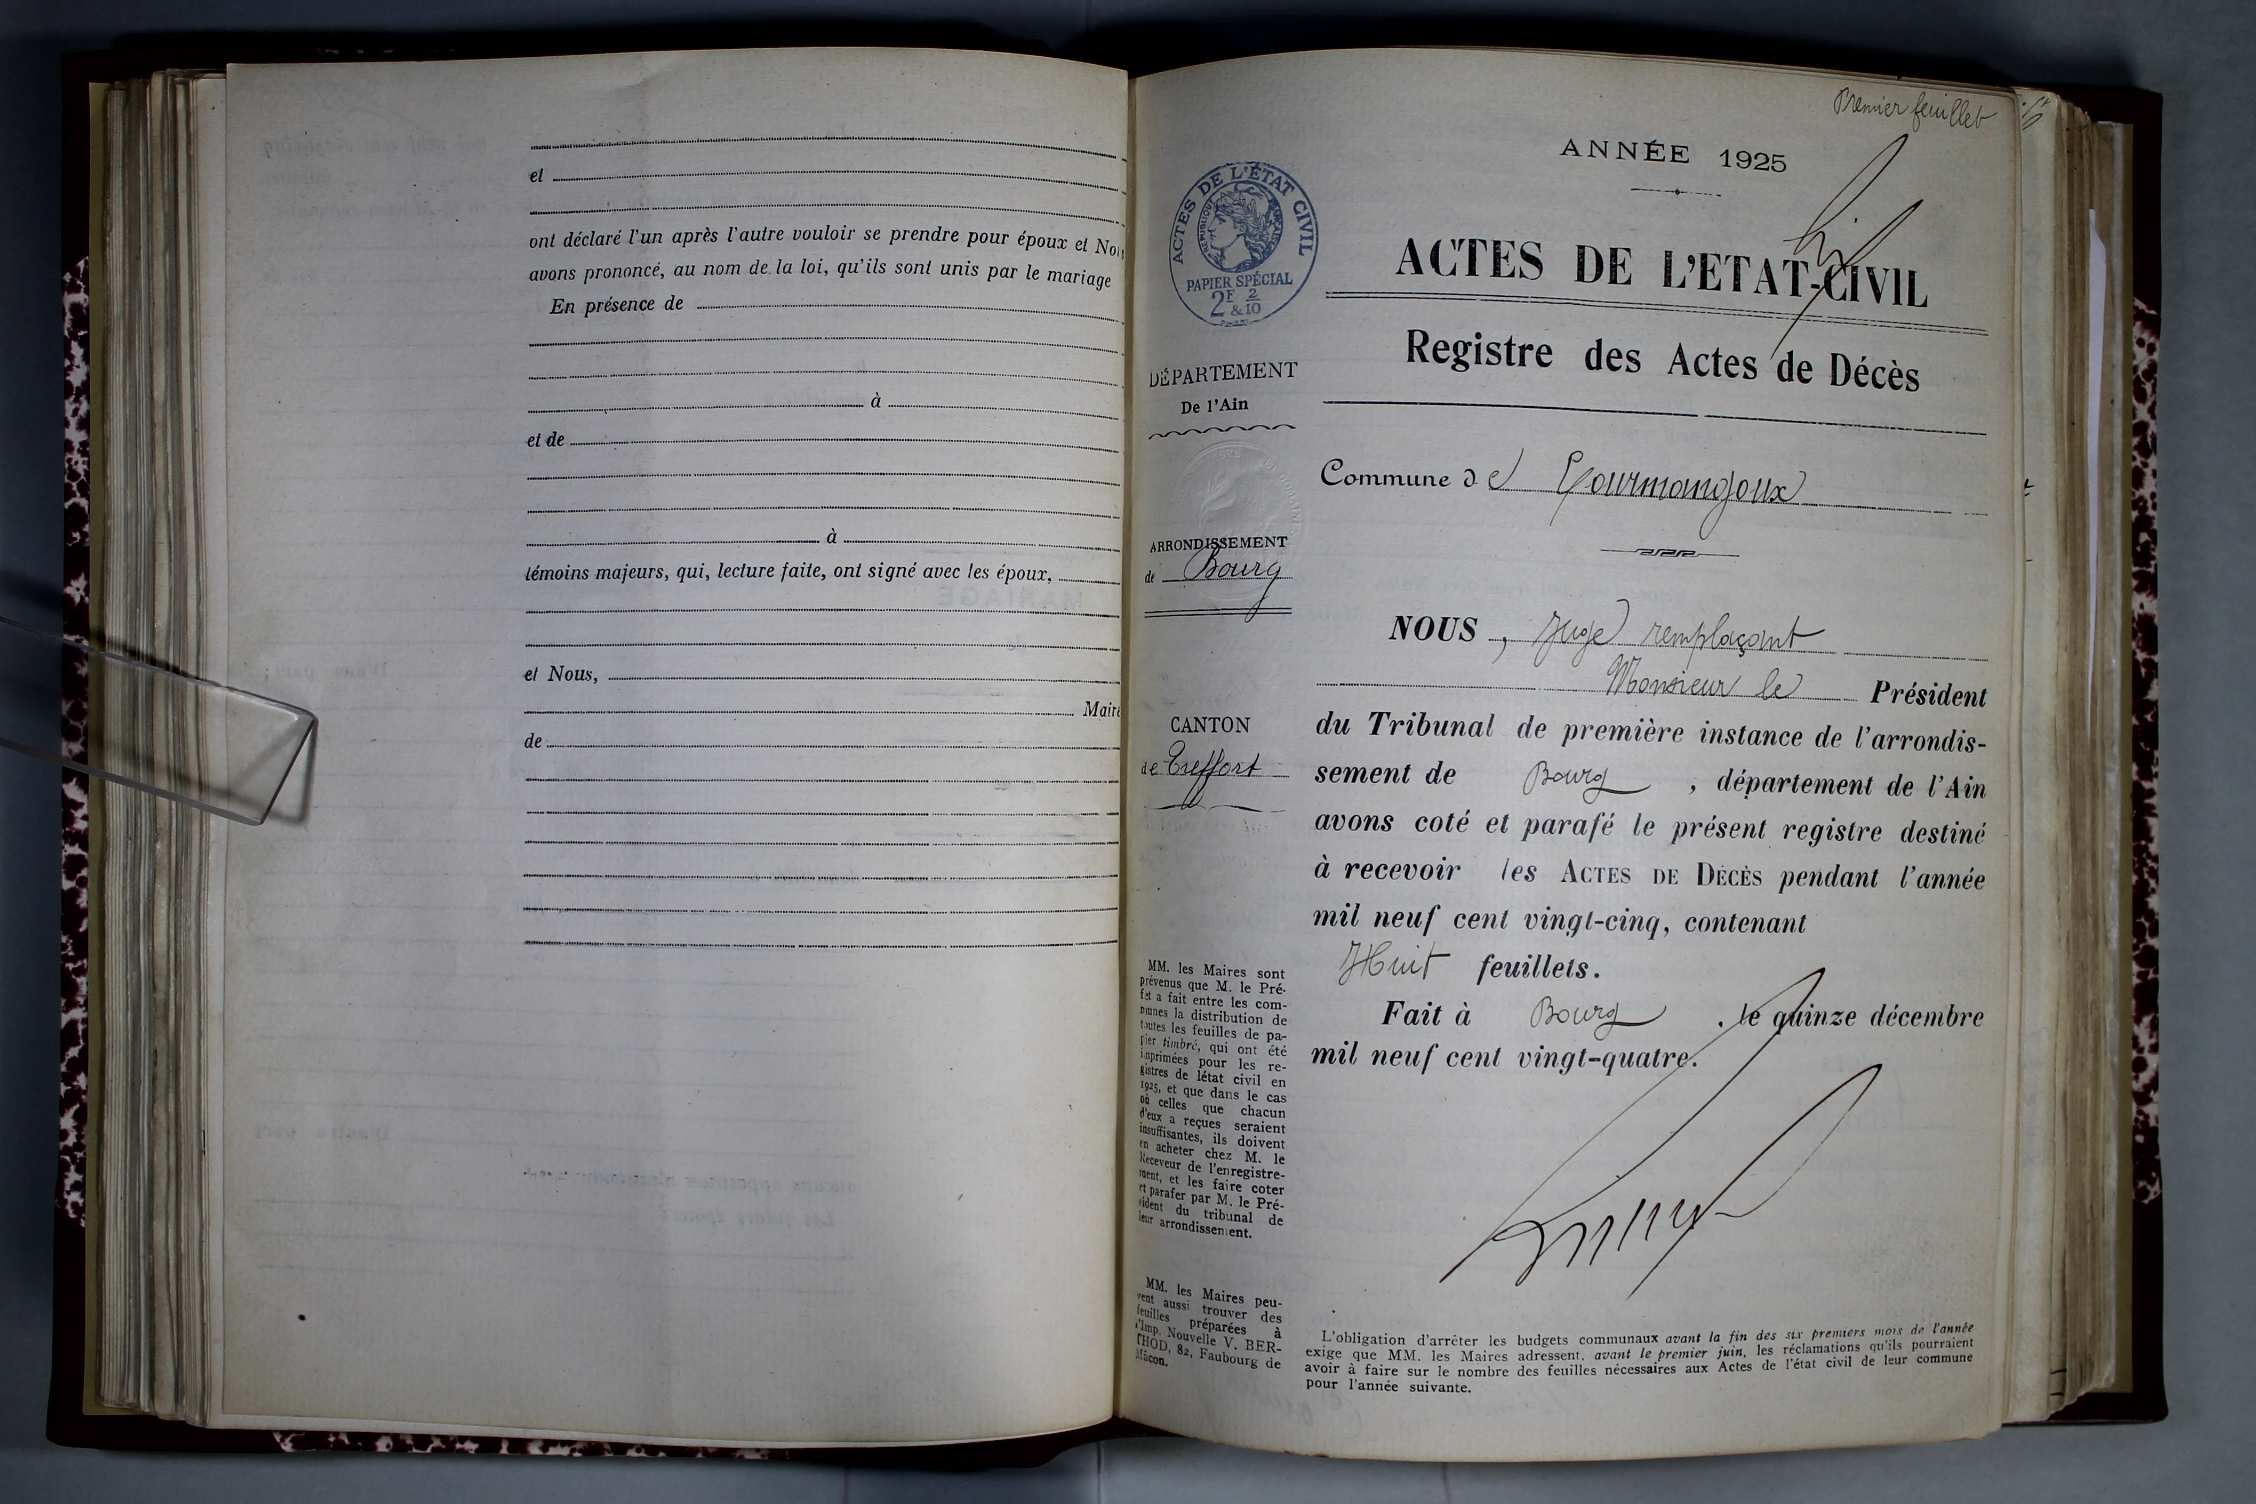 et
ont déclaré l'un après l'autre vouloir se prendre pour époux et Nous
avons prononcé, au nom de la loi, qu'ils sont unis par le mariage
En présence de
à
et de
à
témoins majeurs, qui, lecture faite, ont signé avec les époux,
et Nous,
Maire
de
Premier feuillet
ANNÉE 1925
ACTES DE L'ÉTAT CIVIL
RÉPUBLIQUE FRANÇAISE
PAPIER SPÉCIAL
2F & 2/10
ACTES DE L'ETAT-CIVIL
Registre des Actes de Décès
DÉPARTEMENT
De l'Ain
Commune de Pourmangoux
ARRONDISSEMENT
de Bourg
CANTON
de Treffort
NOUS, Juge remplaçant
Monsieur le Président
du Tribunal de première instance de l'arrondis-
sement de Bourg, département de l'Ain
avons coté et parafé le présent registre destiné
à recevoir les ACTES DE DÉCÈS pendant l'année
mil neuf cent vingt-cinq, contenant
Huit feuillets.
Fait à Bourg, le quinze décembre
mil neuf cent vingt-quatre.
MM. les Maires sont
prévenus que M. le Pré-
fet a fait entre les com-
munes la distribution de
toutes les feuilles de pa-
pier timbré, qui ont été
imprimées pour les re-
gistres de létat civil en
1925, et que dans le cas
où celles que chacun
d'eux a reçues seraient
insuffisantes, ils doivent
en acheter chez M. le
Receveur de l'enregistre-
ment, et les faire coter
et parafer par M. le Pré-
sident du tribunal de
leur arrondissement.
MM. les Maires peu-
vent aussi trouver des
feuilles préparées à
l'Imp. Nouvelle V. BER-
THOD, 82, Faubourg de
Mâcon.
L'obligation d'arrêter les budgets communaux avant la fin des six premiers mois de l'année
exige que MM. les Maires adressent, avant le premier juin, les réclamations qu'ils pourraient
avoir à faire sur le nombre des feuilles nécessaires aux Actes de l'état civil de leur commune
pour l'année suivante.